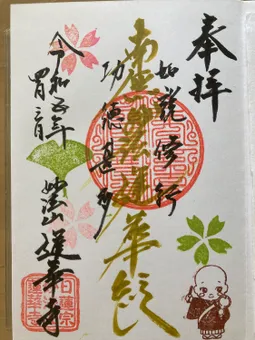 奉拝
如説修行
南無妙法蓮華経
功徳甚多
令和五年
妙法山 蓮華寺
日蓮宗
蓮華寺